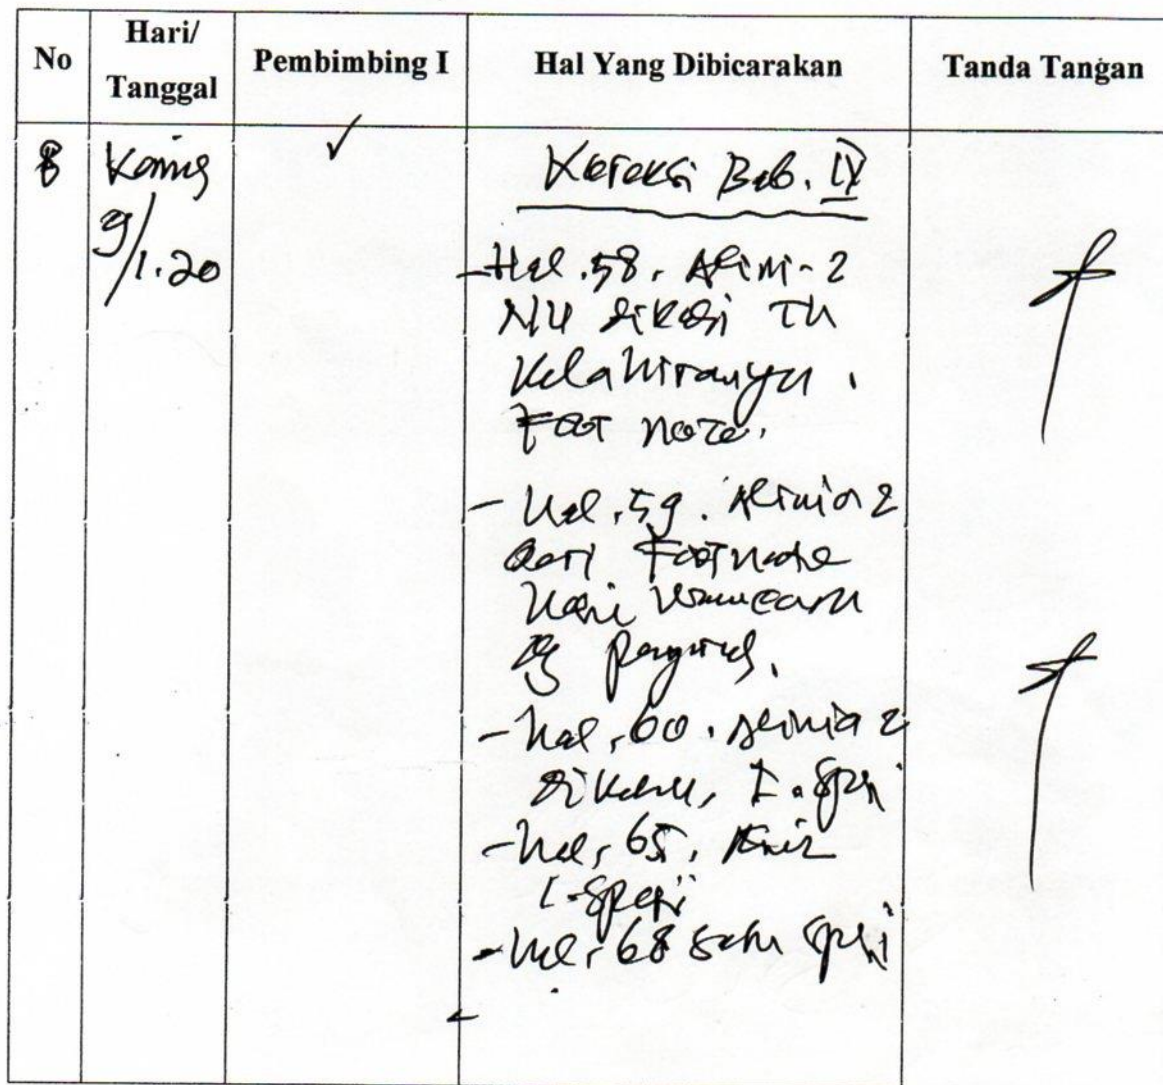 No
Hari/
Tanggal
Pembimbing I
Hal Yang Dibicarakan
Tanda Tangan
8
Kamis
9/1.20
✓
Koreksi Bab. IV
- Hal. 58. Alini-2
NU dikasi Th
Kelahirannya.
Foot note.
- Hal. 59. Alinia 2
dari Footnote
- Hal. 60. Alinia 2
- Hal. 65. Akhir
1-Spasi
- Hal. 68 satu spasi